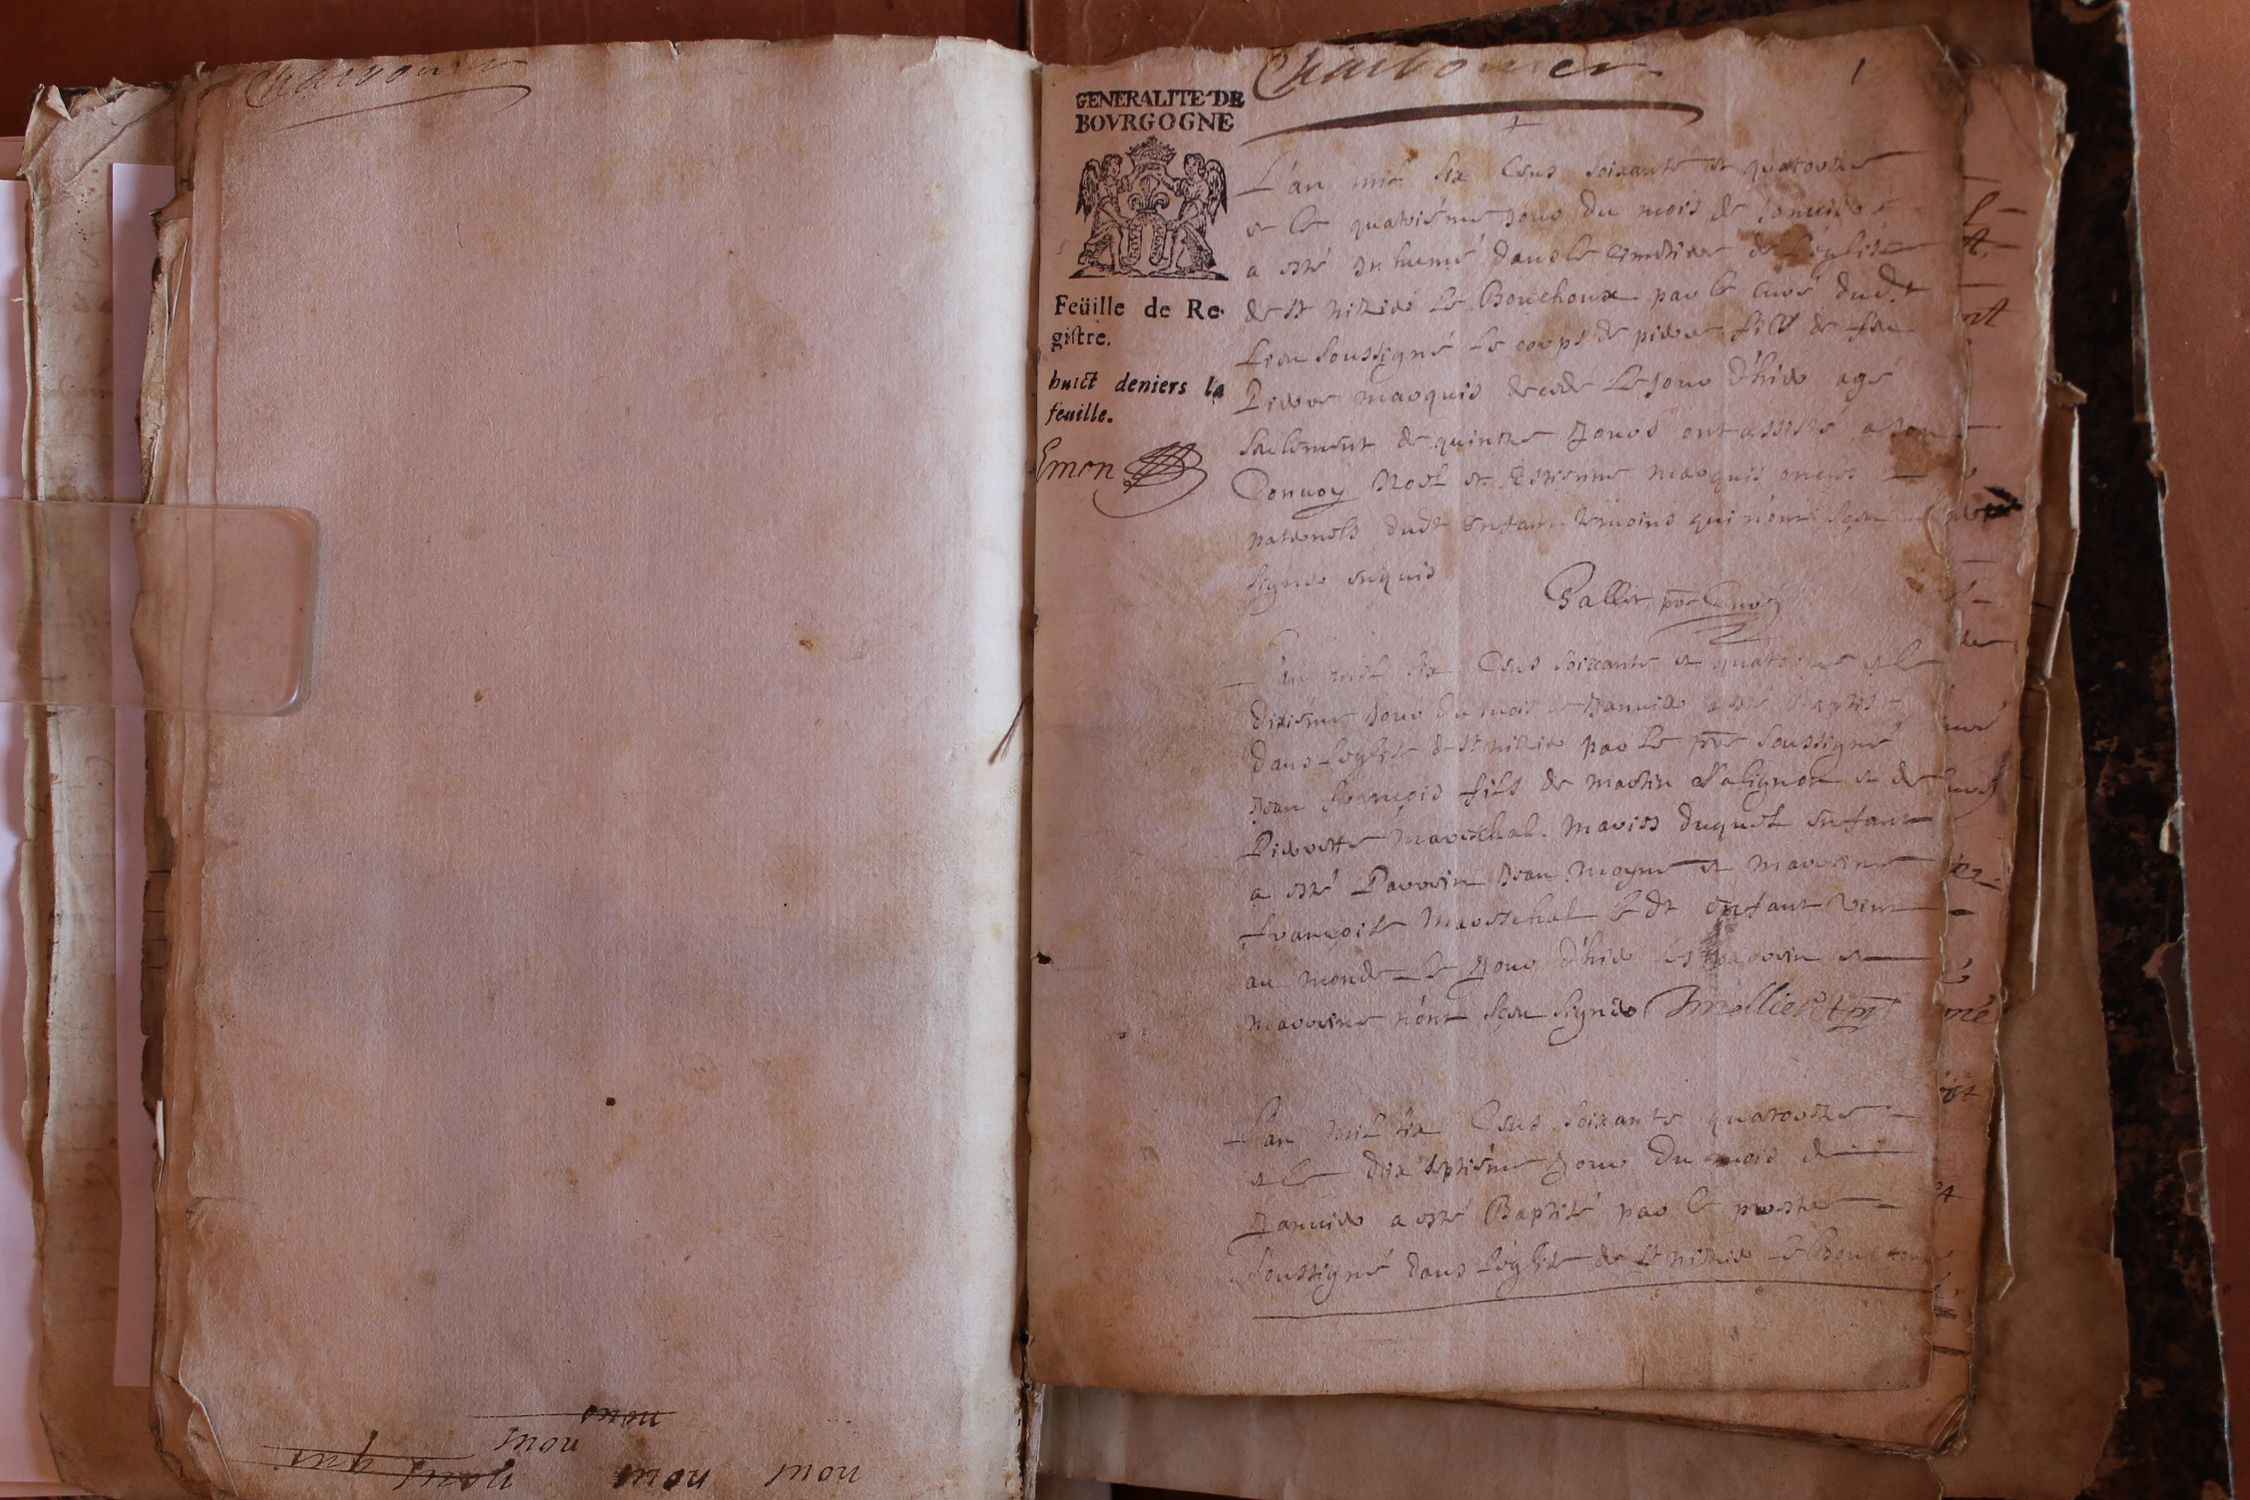 Charbonier
onou
mou
mou
mou
mou
Charbonier
1
GENERALITE DE
BOVRGOGNE
Feüille de Re-
gistre.
huict deniers la
feuille.
Emon
L'an mil six Cens soixante et quatorze
et le quatriéme jour du mois de Januier
a esté inhumé dans le cimetiere de l'église
de st nizier le Bouchoux par le curé dud.t
lieu soussigné le corps de pierre fils de feu
Pierre marquis decedé le jour d'hier agé
seulement de quinze jours ont assisté a son
Conuoy Noel et Estienne marquis oncles
paternels dudt enfant témoins qui n'ont sceu
signer enquis
Gallet ptre Curé
L'an mil six Cens soixante et quatorze et le
dixiéme jour du mois de Januier a esté baptisé
dans l'église de st nizier par le ptre soussigné
Jean François fils de martin salignon et de
Pierrette mareschal. mariés duquel enfant
a esté Parrein Jean moyne et marreine
françoise mareschal ledt enfant venu
au monde le jour d'hier les parrein et
marreine n'ont sceu signer
L'an mil six Cens soixante quatorze
et le dix septiéme jour du mois de
Januier a esté Baptisé par le prestre
soussigné dans l'église de st nizier le Bouchoux